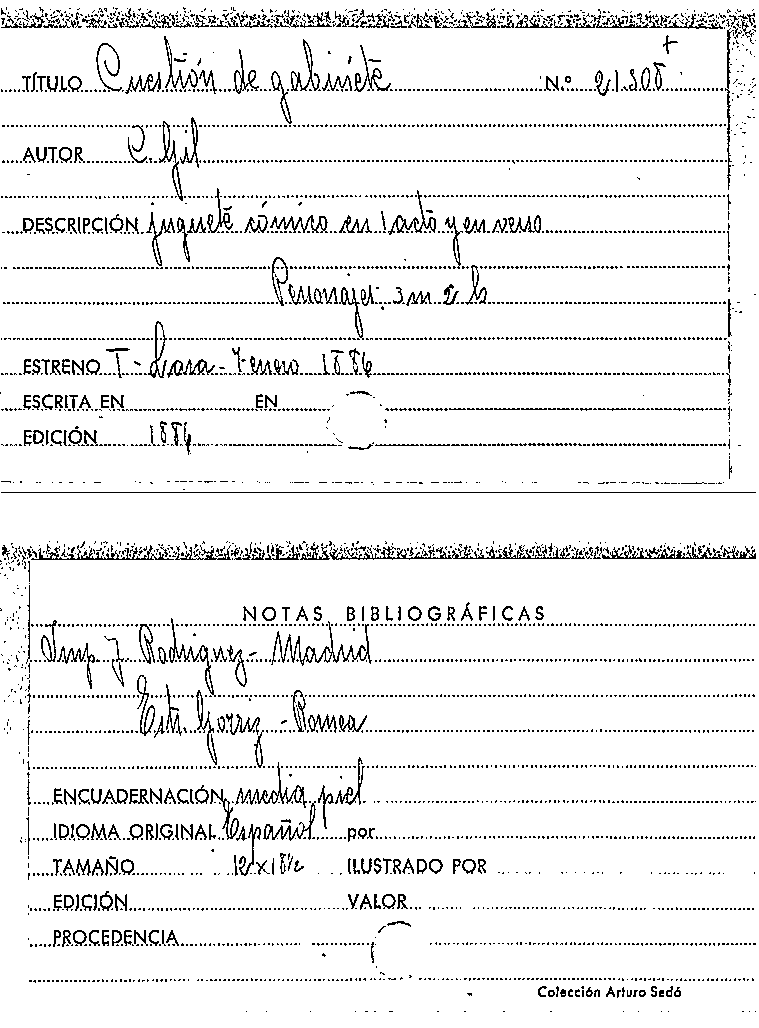 TÍTULO Cuestión de gabinete N.º 21308 +
AUTOR C. Gil
DESCRIPCIÓN juguete cómico en 1 acto y en verso
Personajes: 3 m 2 h
ESTRENO T- Lara - 7 enero 1886
ESCRITA EN EN
EDICIÓN 1886
NOTAS BIBLIOGRÁFICAS
Imp J Rodriguez - Madrid
Gorriz -
ENCUADERNACIÓN media piel
IDIOMA ORIGINAL Español por
TAMAÑO 12 x 18½ ILUSTRADO POR
EDICIÓN VALOR
PROCEDENCIA
Colección Arturo Sedó